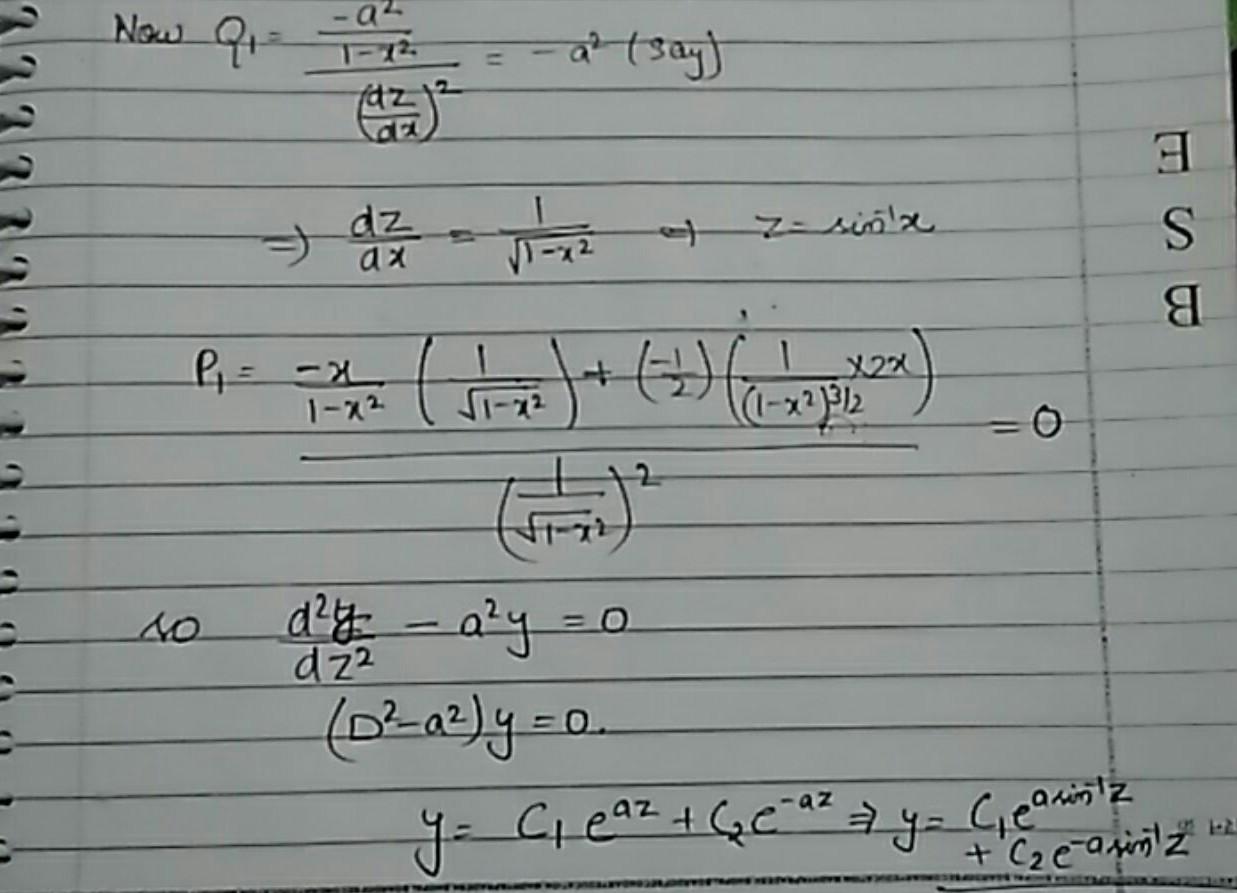 Now Q₁ = (-a²/(1-x²))/(dz/dx)² = -a² (say)
⇒ dz/dx = 1/√(1-x²) ⇒ z = sin⁻¹x
P₁ = (-x/(1-x²) (1/√(1-x²)) + (-1/2) (1/(1-x²)^3/2 × 2x))/(1/√(1-x²))² = 0
so d²y/dz² - a²y = 0
(D²-a²)y = 0.
y = C₁e^az + C₂e^-az ⇒ y = C₁e^a sin⁻¹z
+ C₂e^-a sin⁻¹z
E
S
B